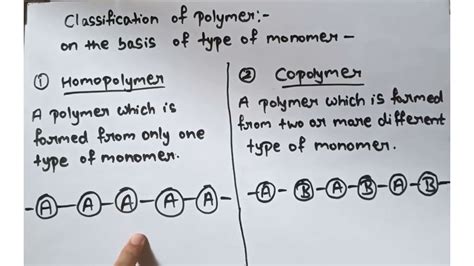 Classification of polymer:-
on the basis of type of monomer -
① Homopolymer
A polymer which is
formed from only one
type of monomer.
-A-A-A-A-A-
② Copolymer
A polymer which is formed
from two or more different
type of monomer.
-A-B-A-B-A-B-